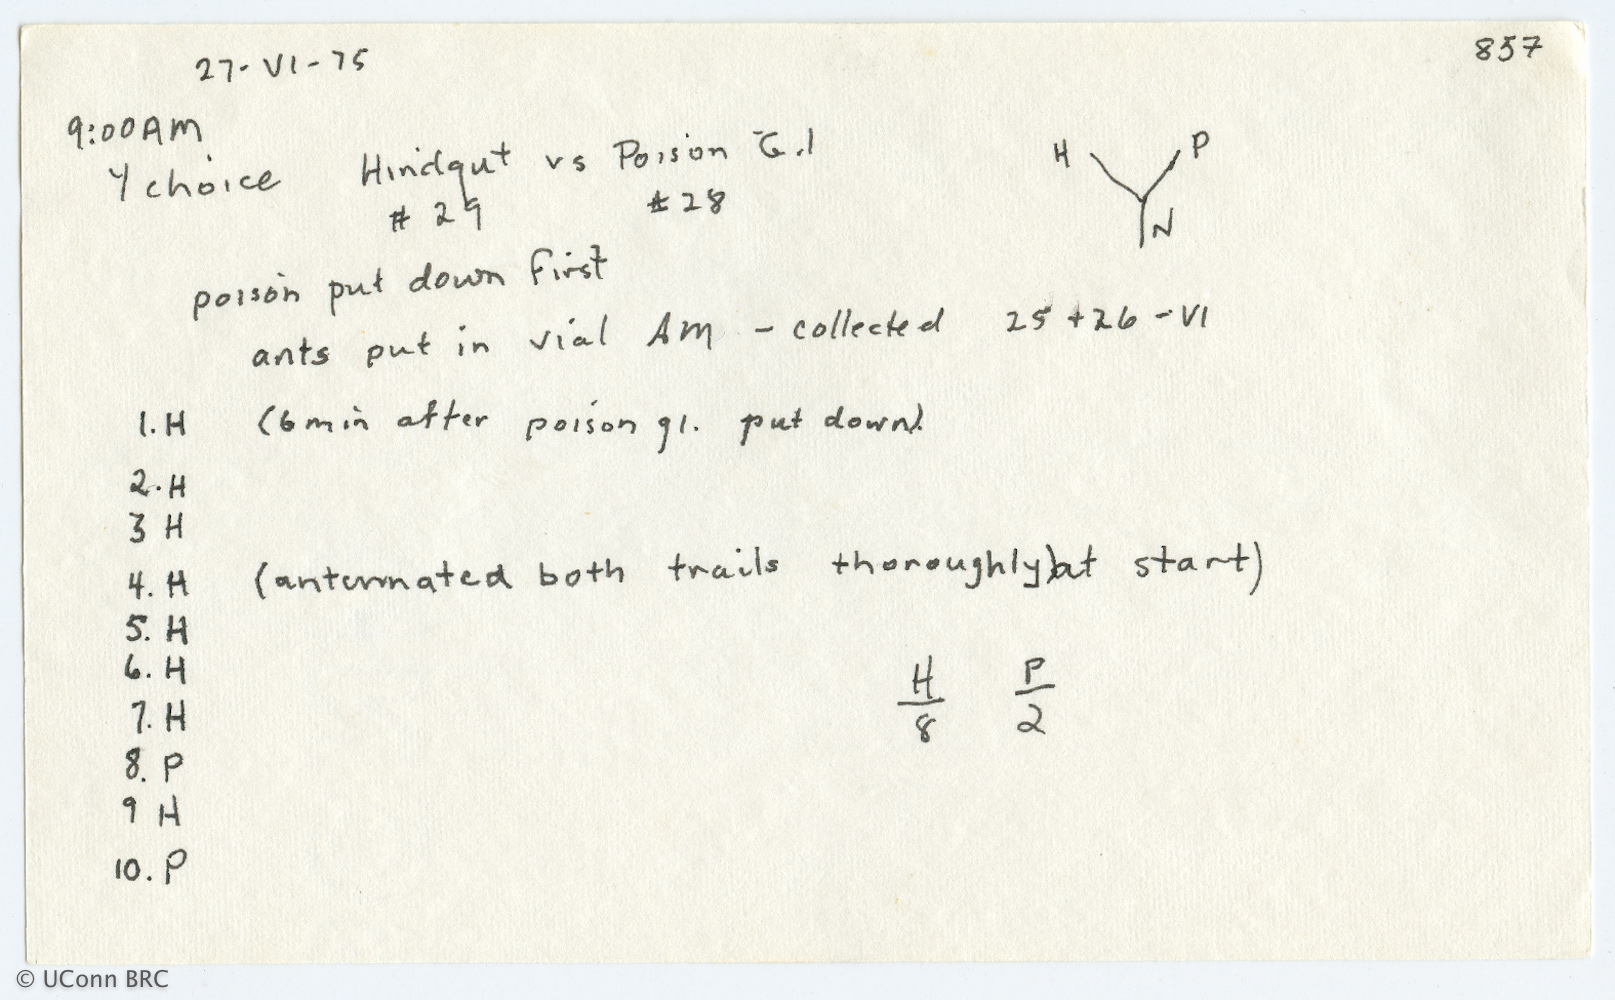 27-VI-75
857
9:00AM
Y choice Hindgut vs Poison Gl
# 29 # 28
H P
N
poison put down first
ants put in vial AM - collected 25 + 26 - VI
1. H (6 min after poison gl. put down).
2. H
3 H
4. H (antennated both trails thoroughly) at start)
5. H
6. H
7. H
H P
8 2
8. P
9 H
10. P
© UConn BRC